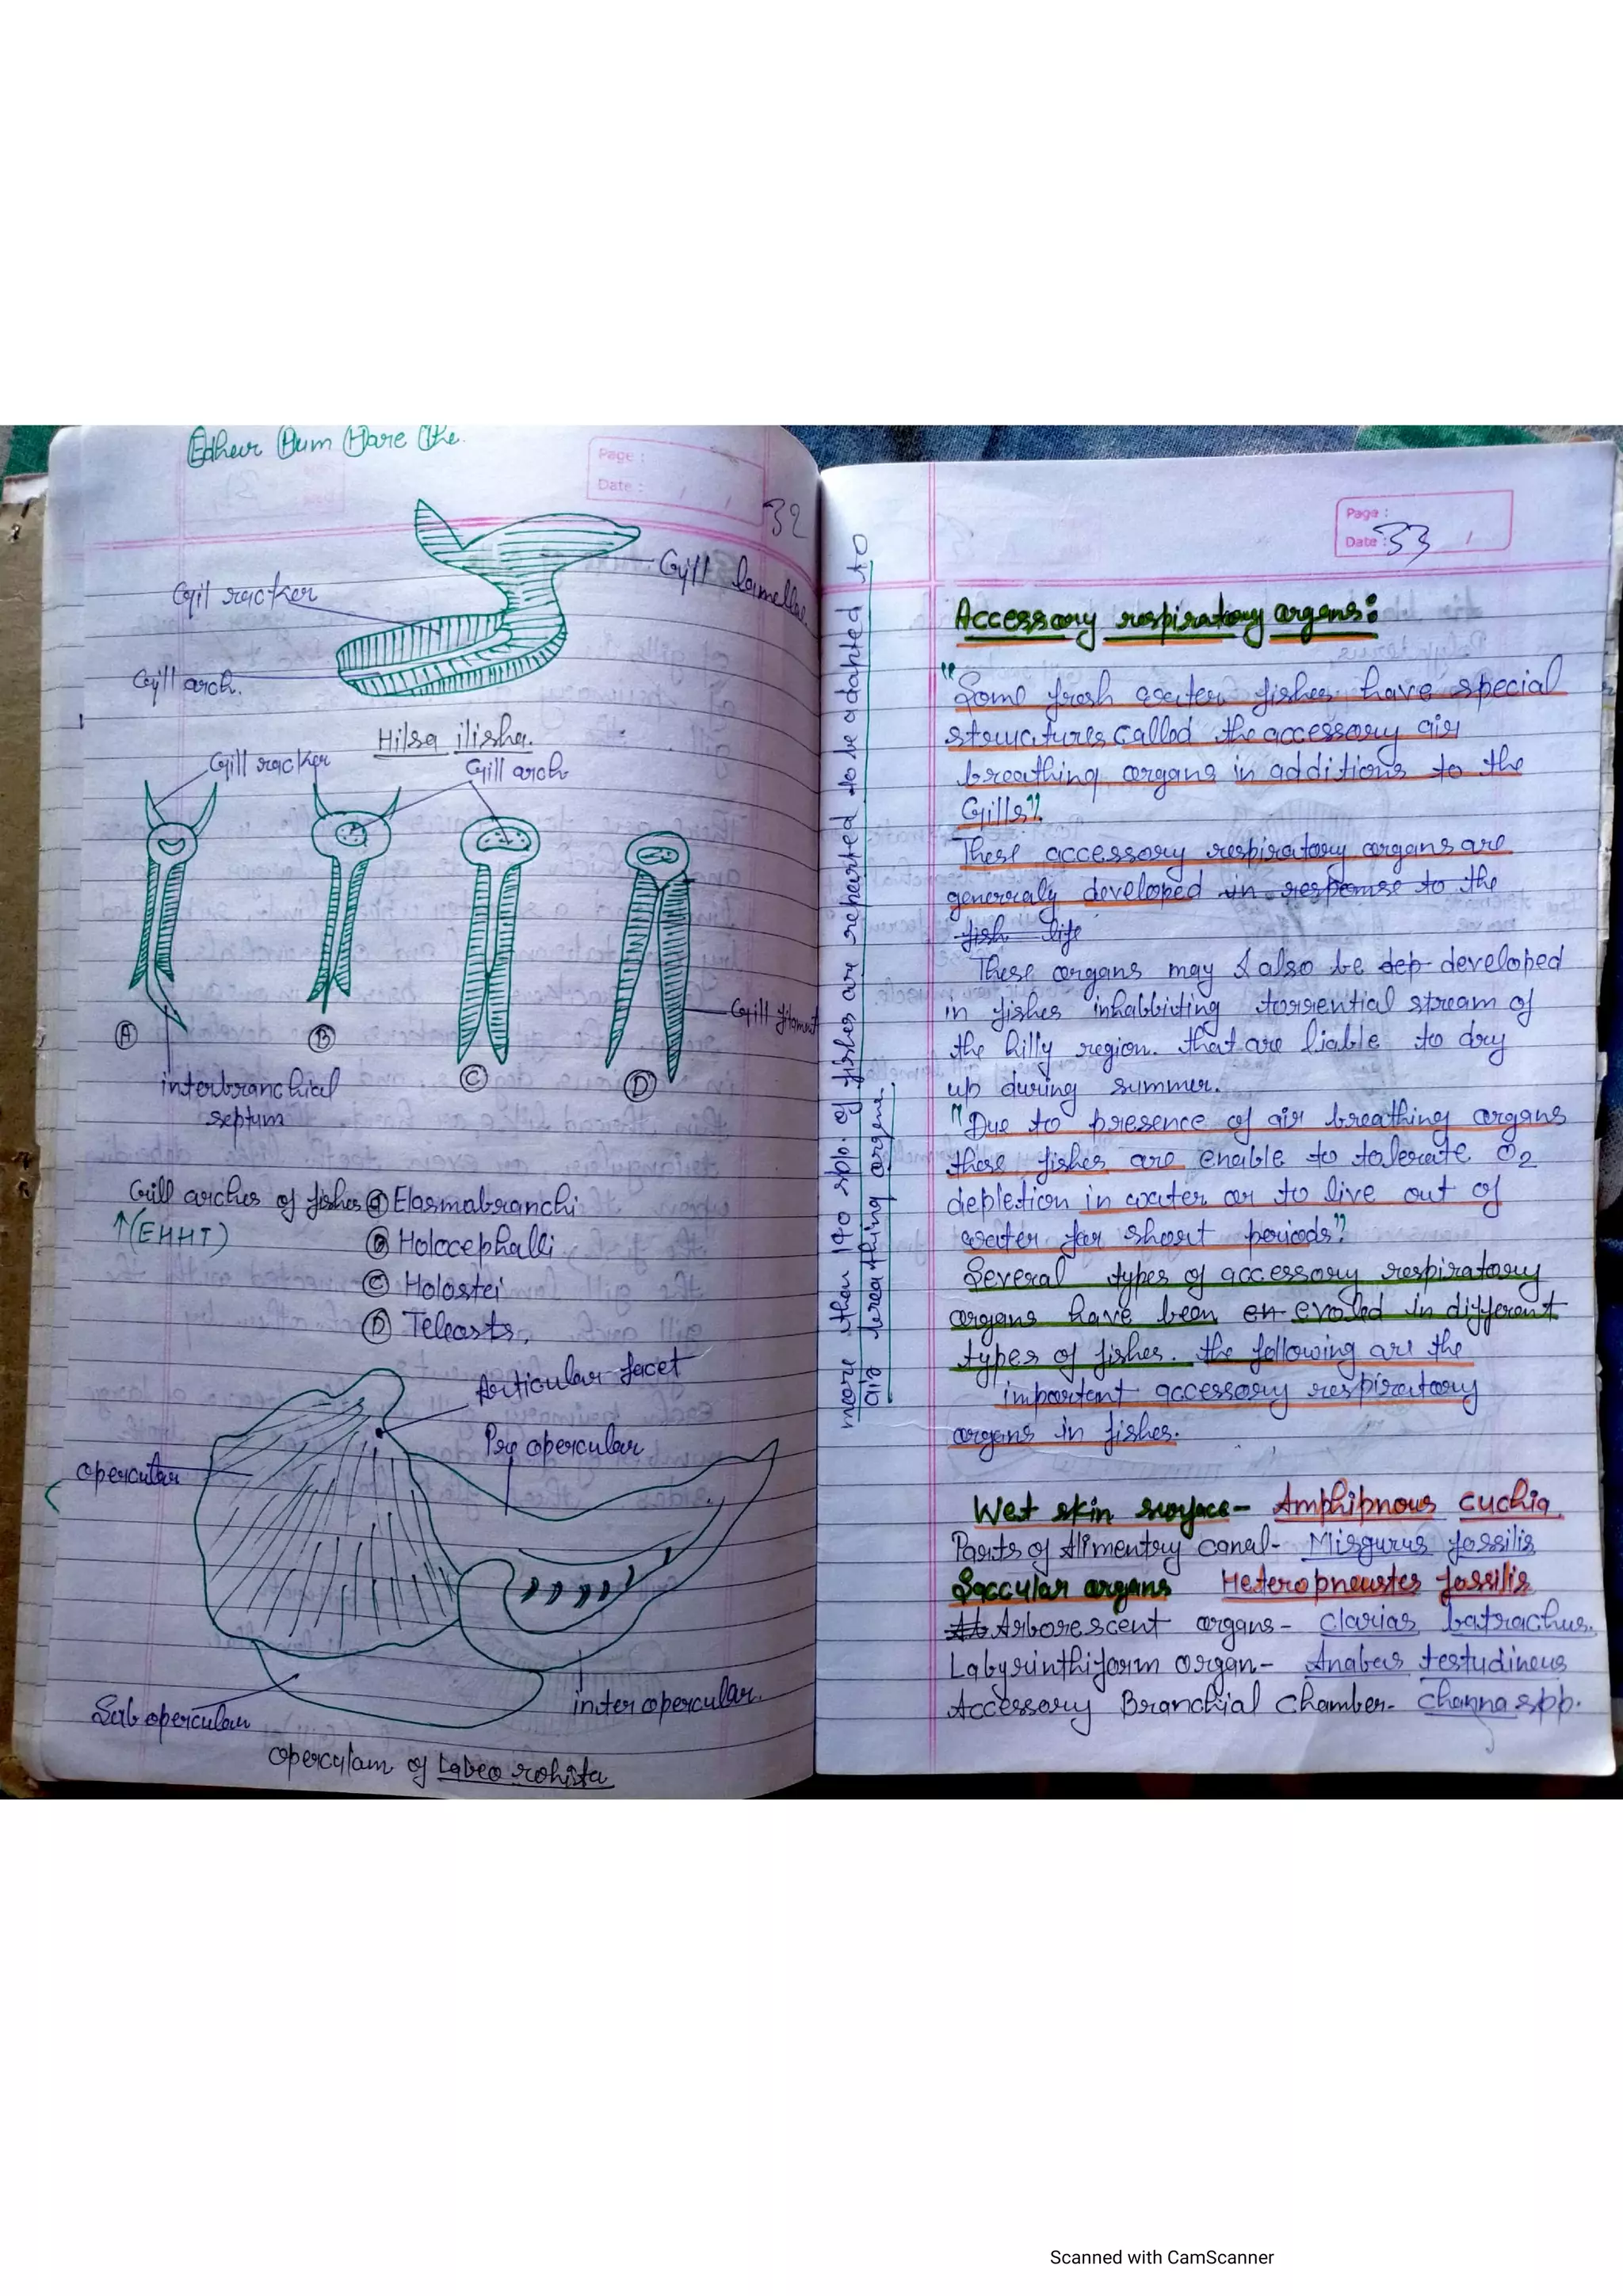 Edheer Hum Hare the.
Page :
Date : / /
32
Gill lamellae
Gill racker
Gill arch.
Hilsa ilisha.
Gill racker
Gill arch
Gill filament
A
B
C
D
interbranchial
septum
Gill arches of fishes A Elasmabranchi
↑(EHHT)
B Holocephalli
C Holostei
D Teleasts,
Articular facet
Pre opercular
opercular
inter opercular.
Sub opercular
operculam of Labeo rohita
more then 140 spp. of fishes are reharted to be adapted to
air breathing organe.
Page :
Date : 33 /
Accessory respiratory organs:
"Some fresh water fishes have special
structures called the accessory air
breathing organs in additions to the
Gills".
These accessory respiratory organs are
generaly developed in response to the
fish life
These organs may & also be dep developed
in fishes inhabbiting torrential stream of
the hilly region. that are liable to dry
up during summer.
"Due to presence of air breathing organs
these fishes are enable to tolerate O2
depletion in water or to live out of
water for short periods"
Several types of accessory respiratory
organs have been en evoled in different
types of fishes. the following are the
important accessory respiratory
organs in fishes.
Wet skin surface - Amphipnous cuchia
Parts of Alimentry canal - Misgurus fossilis
Saccular organs Heteropneustes fossilis
Ab Arborescent organs - Clarias batrachus.
Labyrinthiform organ - Anabas testudineus
Accessory Branchial chamber - channa spp.
Scanned with CamScanner